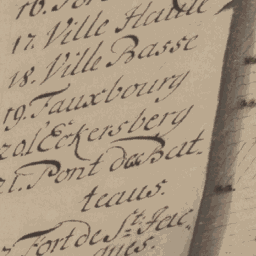 16. 
17. Ville Haute
18. Ville Basse
19. Fauxbourg
20. d'Eckersberg
21. Pont de Bat-
teaus.
Fort de St: Jac-
ques.